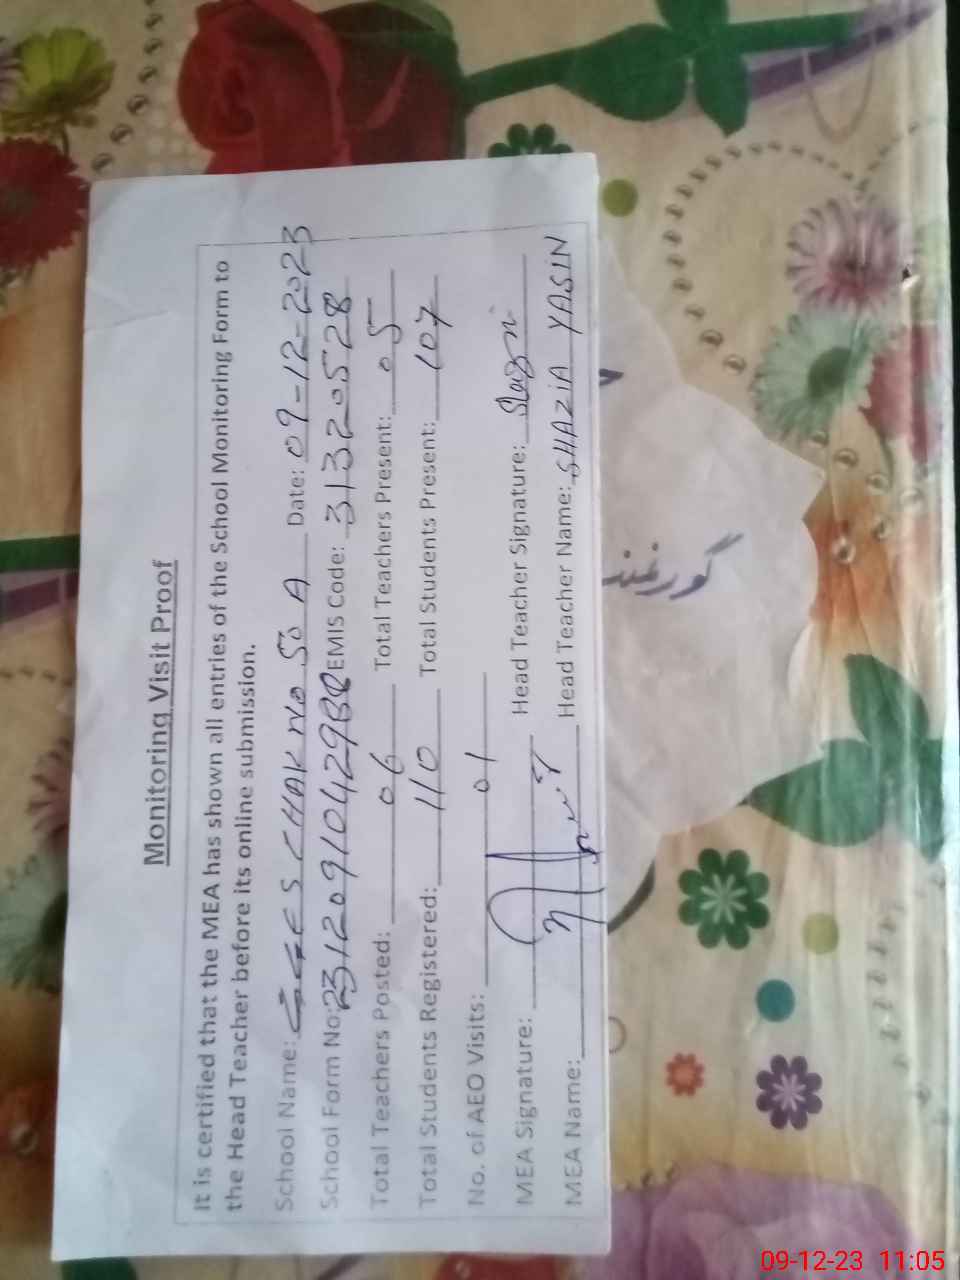 Monitoring Visit Proof
It is certified that the MEA has shown all entries of the School Monitoring Form to
the Head Teacher before its online submission.
School Name: GGES CHAK NO 50 A Date: 09-12-2023
School Form No: EMIS Code: 31320528
Total Teachers Posted: 06 Total Teachers Present: 05
Total Students Registered: 110 Total Students Present: 107
No. of AEO Visits: 01
MEA Signature: Head Teacher Signature:
MEA Name: Head Teacher Name: SHAZIA YASIN
گورنمنٹ
09-12-23 11:05